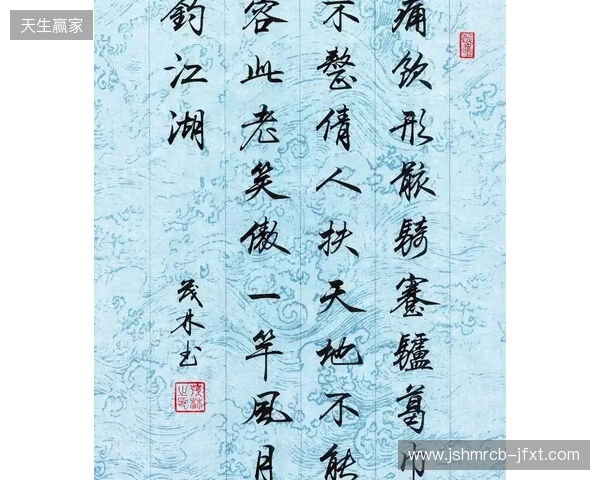 天生赢家
痛飲形骸騎蹇驢葛巾
不整倩人扶天地不能
容此老笑傲一竿風月
釣江湖
茂林书
www.jshmrcb-jfxt.com